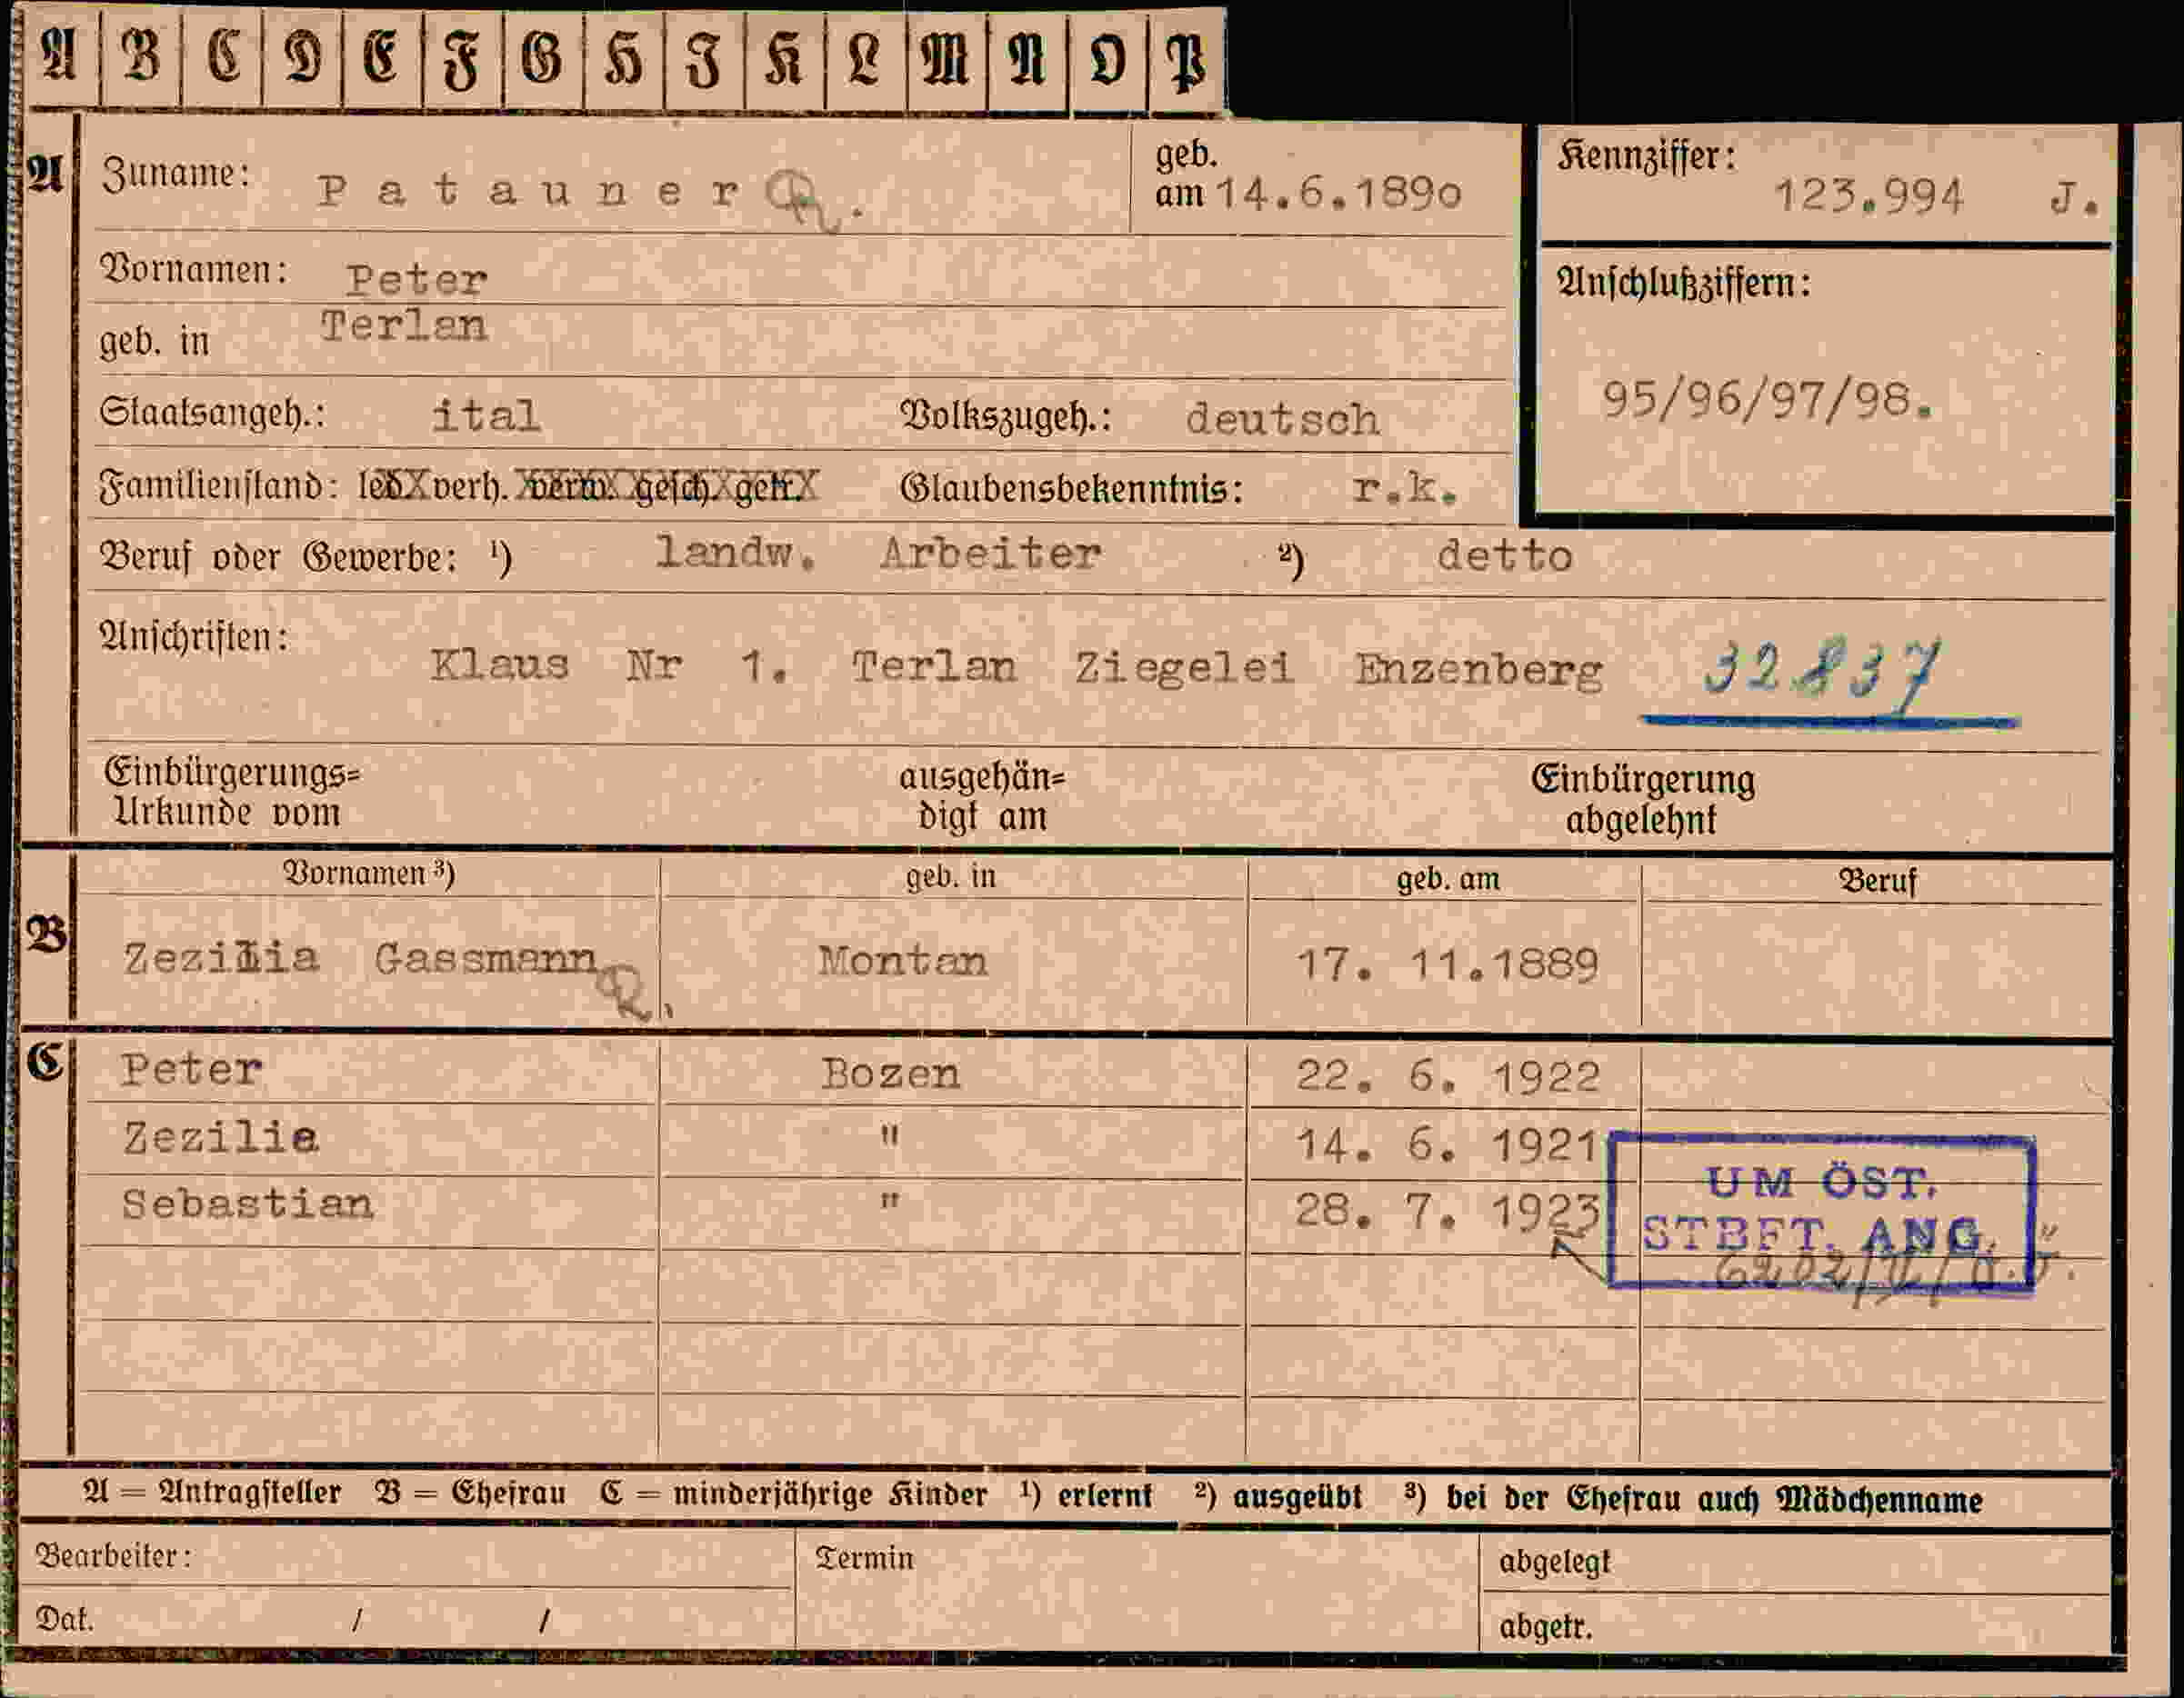 A B C D E F G H I K L M N O P
A Zuname: Patauner R. geb. am 14.6.1890 Kennziffer: 123.994 J.
Vornamen: Peter
geb. in Terlan
Anschlußziffern:
95/96/97/98.
Staatsangeh.: ital Volkszugeh.: deutsch
Familienstand: led. verh. verw. gesch. getr. Glaubensbekenntnis: r.k.
Beruf oder Gewerbe: ¹) landw. Arbeiter ²) detto
Anschriften: Klaus Nr 1. Terlan Ziegelei Enzenberg 32837
Einbürgerungs= ausgehän= Einbürgerung
Urkunde vom digt am abgelehnt
Vornamen ³) geb. in geb. am Beruf
B Zezilia Gassmann R. Montan 17. 11.1889
C Peter Bozen 22. 6. 1922
Zezilie " 14. 6. 1921
Sebastian " 28. 7. 1923
UM ÖST.
STBFT. ANG.
A = Antragsteller B = Ehefrau C = minderjährige Kinder ¹) erlernt ²) ausgeübt ³) bei der Ehefrau auch Mädchenname
Bearbeiter: Termin abgelegt
Dat. / / abgetr.